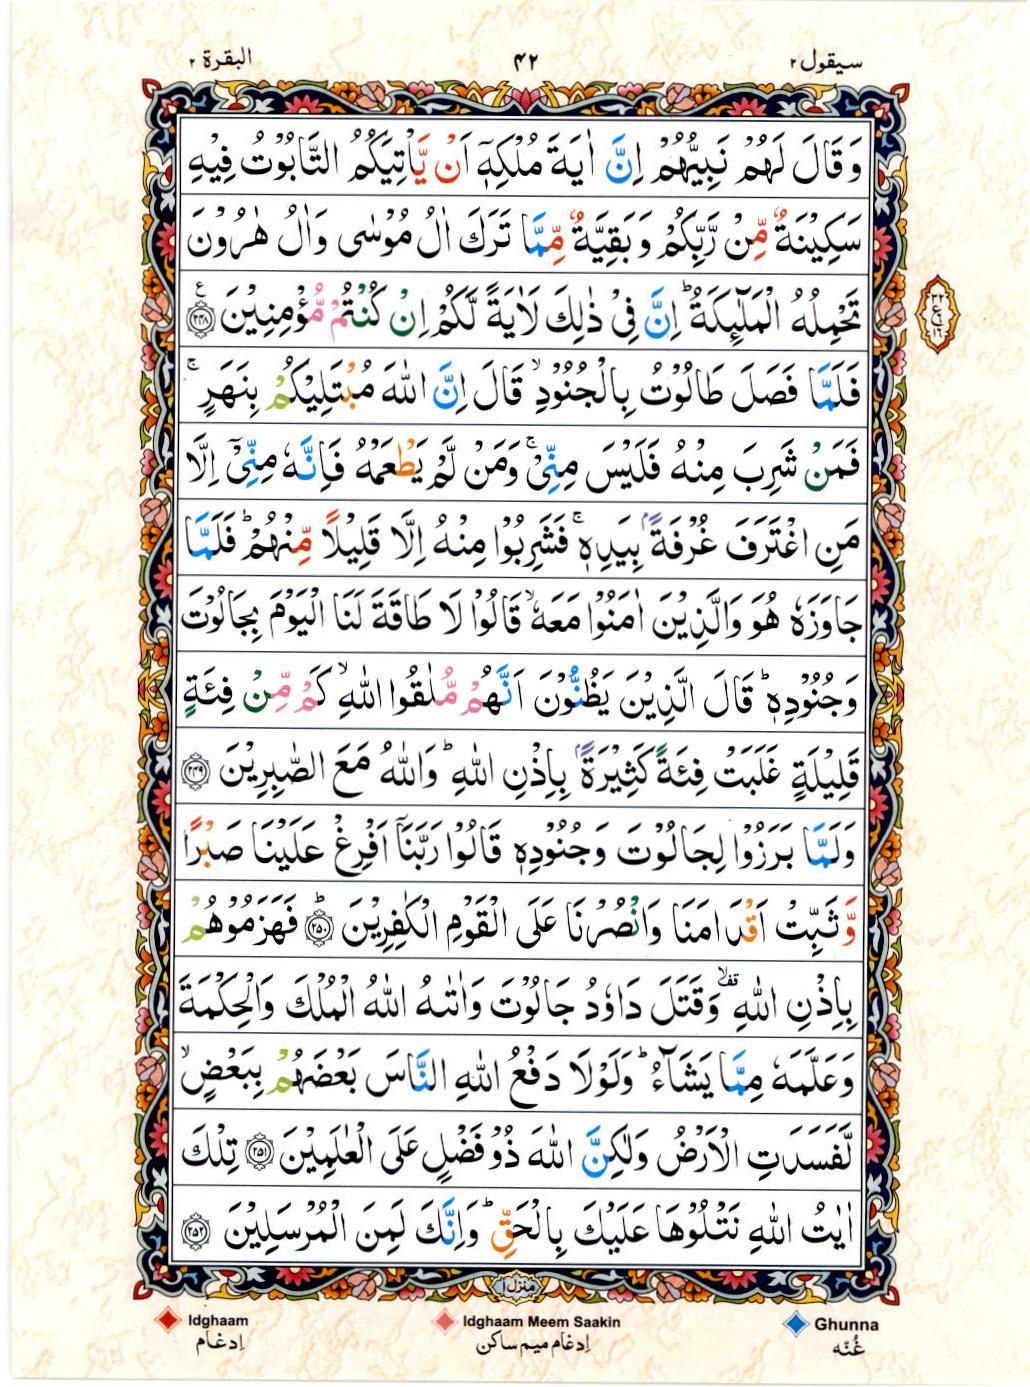 سيقول ٢
٤٢
البقرة ٢
وَقَالَ لَهُمْ نَبِيُّهُمْ اِنَّ اٰيَةَ مُلْكِهٖۤ اَنْ يَّاْتِيَكُمُ التَّابُوْتُ فِيْهِ
سَكِيْنَةٌ مِّنْ رَّبِّكُمْ وَبَقِيَّةٌ مِّمَّا تَرَكَ اٰلُ مُوْسٰى وَاٰلُ هٰرُوْنَ
تَحْمِلُهُ الْمَلٰٓئِكَةُ ؕ اِنَّ فِىْ ذٰلِكَ لَاٰيَةً لَّكُمْ اِنْ كُنْتُمْ مُّؤْمِنِيْنَ ﴿٢٤٨﴾ ع
فَلَمَّا فَصَلَ طَالُوْتُ بِالْجُنُوْدِ ۙ قَالَ اِنَّ اللّٰهَ مُبْتَلِيْكُمْ بِنَهَرٍ ۚ
فَمَنْ شَرِبَ مِنْهُ فَلَيْسَ مِنِّىْ ۚ وَمَنْ لَّمْ يَطْعَمْهُ فَاِنَّهٗ مِنِّىْۤ اِلَّا
مَنِ اغْتَرَفَ غُرْفَةًۢ بِيَدِهٖ ۚ فَشَرِبُوْا مِنْهُ اِلَّا قَلِيْلًا مِّنْهُمْ ؕ فَلَمَّا
جَاوَزَهٗ هُوَ وَالَّذِيْنَ اٰمَنُوْا مَعَهٗ ۙ قَالُوْا لَا طَاقَةَ لَنَا الْيَوْمَ بِجَالُوْتَ
وَجُنُوْدِهٖ ؕ قَالَ الَّذِيْنَ يَظُنُّوْنَ اَنَّهُمْ مُّلٰقُوا اللّٰهِ ۙ كَمْ مِّنْ فِئَةٍ
قَلِيْلَةٍ غَلَبَتْ فِئَةً كَثِيْرَةًۢ بِاِذْنِ اللّٰهِ ؕ وَاللّٰهُ مَعَ الصّٰبِرِيْنَ ﴿٢٤٩﴾
وَلَمَّا بَرَزُوْا لِجَالُوْتَ وَجُنُوْدِهٖ قَالُوْا رَبَّنَاۤ اَفْرِغْ عَلَيْنَا صَبْرًا
وَّثَبِّتْ اَقْدَامَنَا وَانْصُرْنَا عَلَى الْقَوْمِ الْكٰفِرِيْنَ ﴿٢٥٠﴾ ؕ فَهَزَمُوْهُمْ
بِاِذْنِ اللّٰهِ ۙ قف وَقَتَلَ دَاوٗدُ جَالُوْتَ وَاٰتٰىهُ اللّٰهُ الْمُلْكَ وَالْحِكْمَةَ
وَعَلَّمَهٗ مِمَّا يَشَآءُ ؕ وَلَوْلَا دَفْعُ اللّٰهِ النَّاسَ بَعْضَهُمْ بِبَعْضٍ ۙ
لَّفَسَدَتِ الْاَرْضُ وَلٰكِنَّ اللّٰهَ ذُوْ فَضْلٍ عَلَى الْعٰلَمِيْنَ ﴿٢٥١﴾ تِلْكَ
اٰيٰتُ اللّٰهِ نَتْلُوْهَا عَلَيْكَ بِالْحَقِّ ؕ وَاِنَّكَ لَمِنَ الْمُرْسَلِيْنَ ﴿٢٥٢﴾
منزل ١
Ghunna
غُنّه
Idghaam Meem Saakin
اِدغام میم ساکن
Idghaam
اِدغام